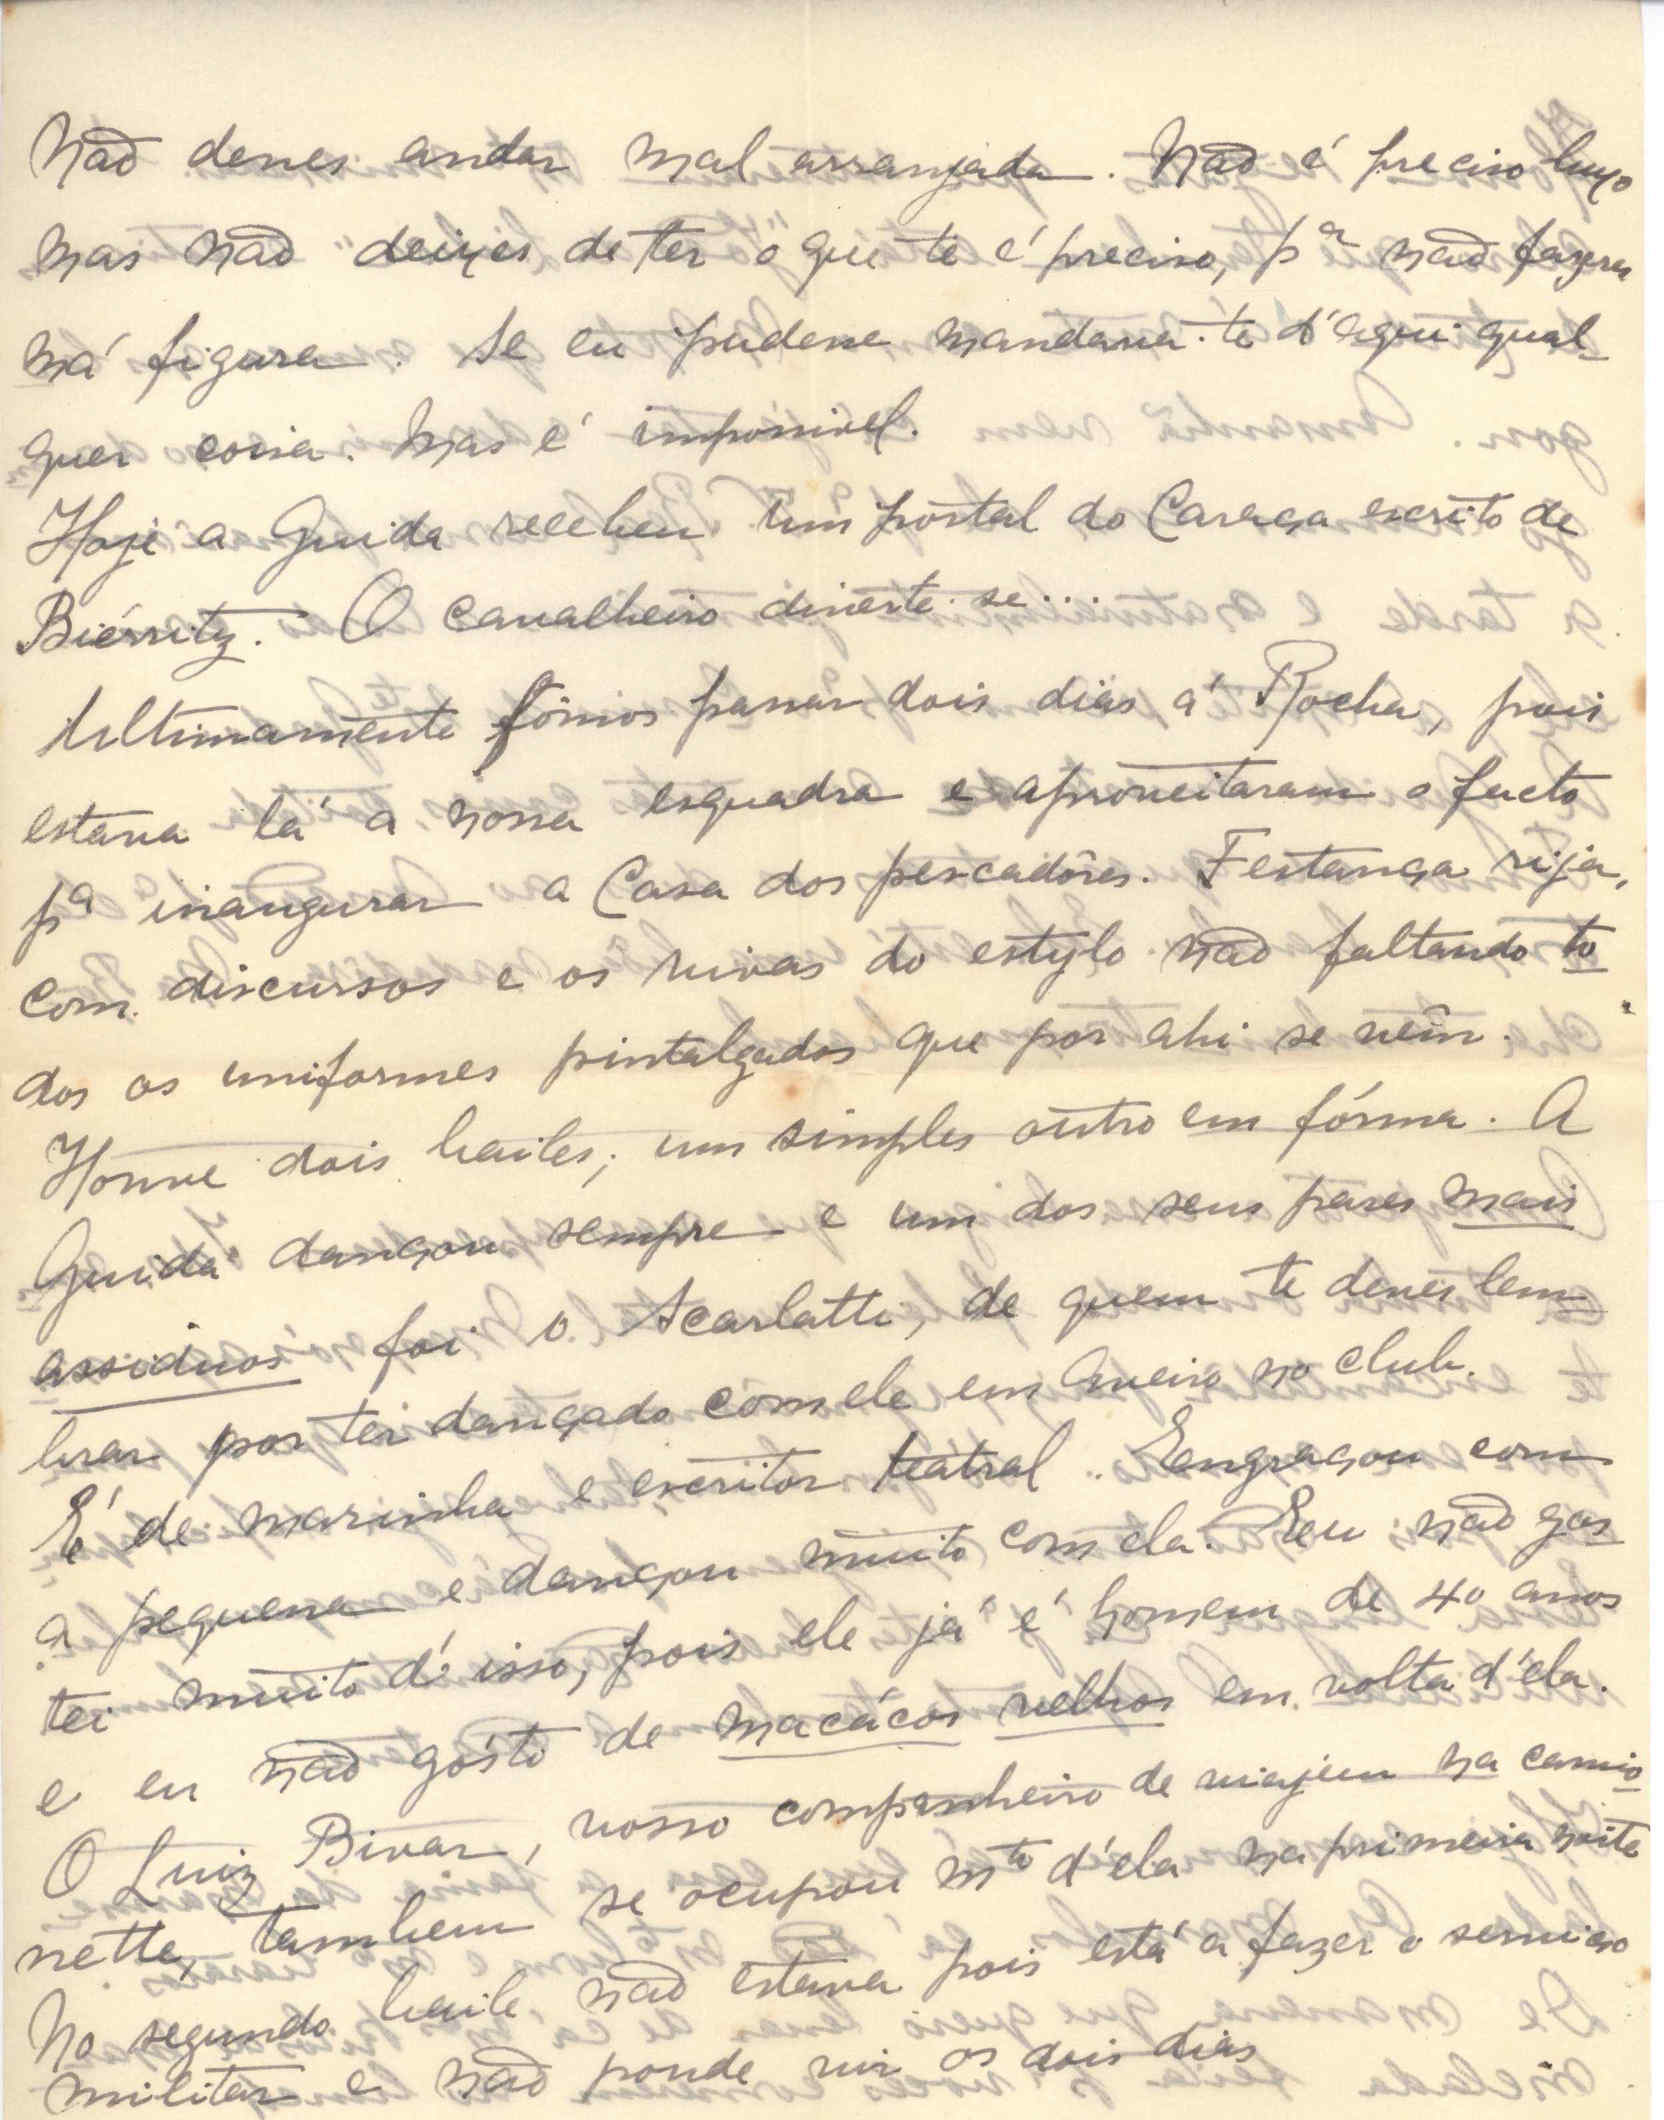 Não deves andar mal arranjada. Não é preciso luxo
mas não deixes de ter o que te é preciso, pª não fazeres
má figura. Se eu pudesse mandava-te d'aqui qual-
quer coisa. Mas é impossivel.
Hoje a Guida recebeu um postal do Caraça escrito de
Biérritz. O cavalheiro diverte-se...
Ultimamente fômos passar dois dias á Rocha, pois
estava lá a nossa esquadra e aproveitaram o facto
pª inaugurar a Casa dos pescadôres. Festança rija,
com discursos e os vivas do estylo não faltando to
dos os uniformes pintalgados que por ahi se vêm.
Houve dois bailes; um simples outro em fórma. A
Guida dançou sempre e um dos seus pares mais
assiduos foi o Scarlatti, de quem te deves lem-
brar por ter dançado com ele em Aveiro no club.
É de marinha e escritor teatral. Engraçou com
a pequena e dançou muito com ela. Eu não gos
tei muito d'isso, pois ele já é homem de 40 anos
e eu não gósto de macácos velhos em volta d'ela.
O Luiz Bivar, vosso companheiro de viajem na camio
nette, tambem se ocupou mto d'ela na primeira noite
No segundo baile não estava pois está a fazer o serviço
militar e não ponde vir os dois dias